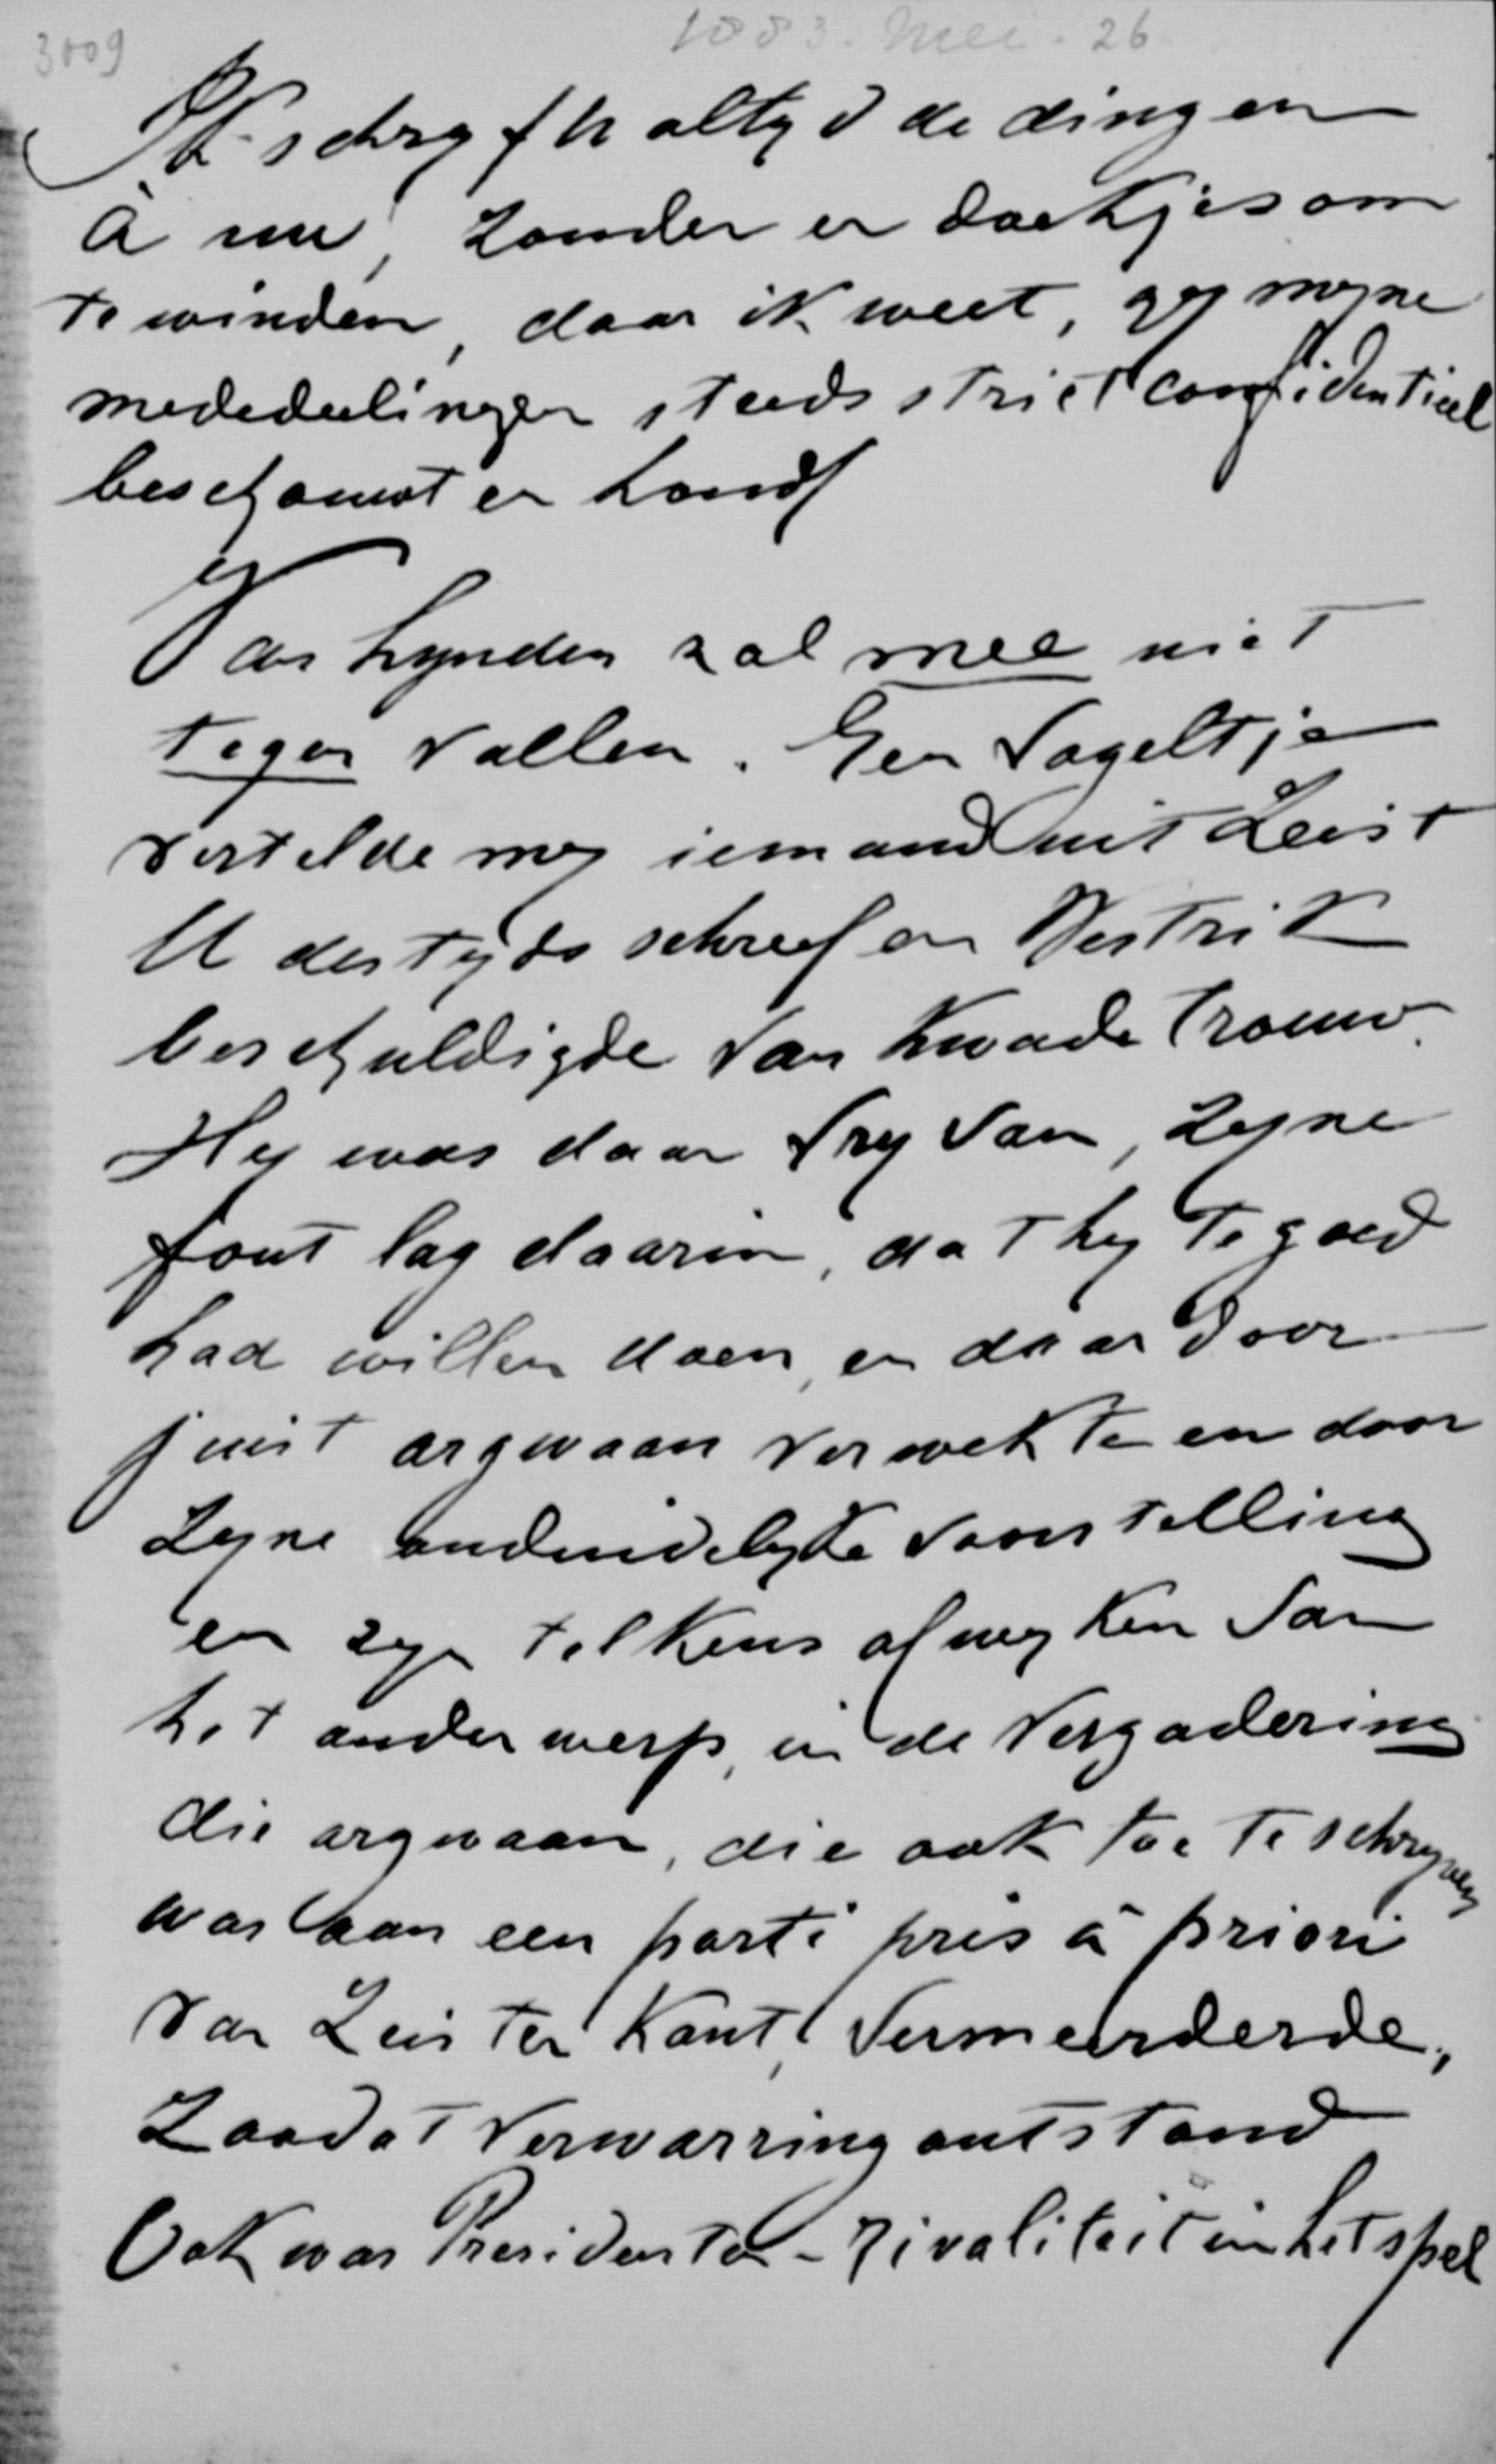 3009
1883. Mei. 26
Ik schryf U altyd de dingen
à nu, zonder er doekjes om
te winden, daar ik weet, gy myne
mededeelingen steeds strict confidentieel
beschouwt en houdt
Van Lynden zal mee niet
tegen vallen. Een Vogeltje
vertelde my iemand uit Zeist
U destyds schreef en Westrik
beschuldigde van kwade trouw.
Hy was daar vry van, zyne
fout lag daarin, dat hy te goed
had willen doen, en daardoor
juist argwaan verwekte en door
zyne onduidelyke voorstelling
en zyn telkens afwyken van
het onderwerp, in de Vergadering
die argwaan, die ook toe te schryven
was aan een parti pris à priori
van Zeister kant, vermeerderde,
Zoodat verwarring ontstond
Ook was Presidents-rivaliteit in het spel